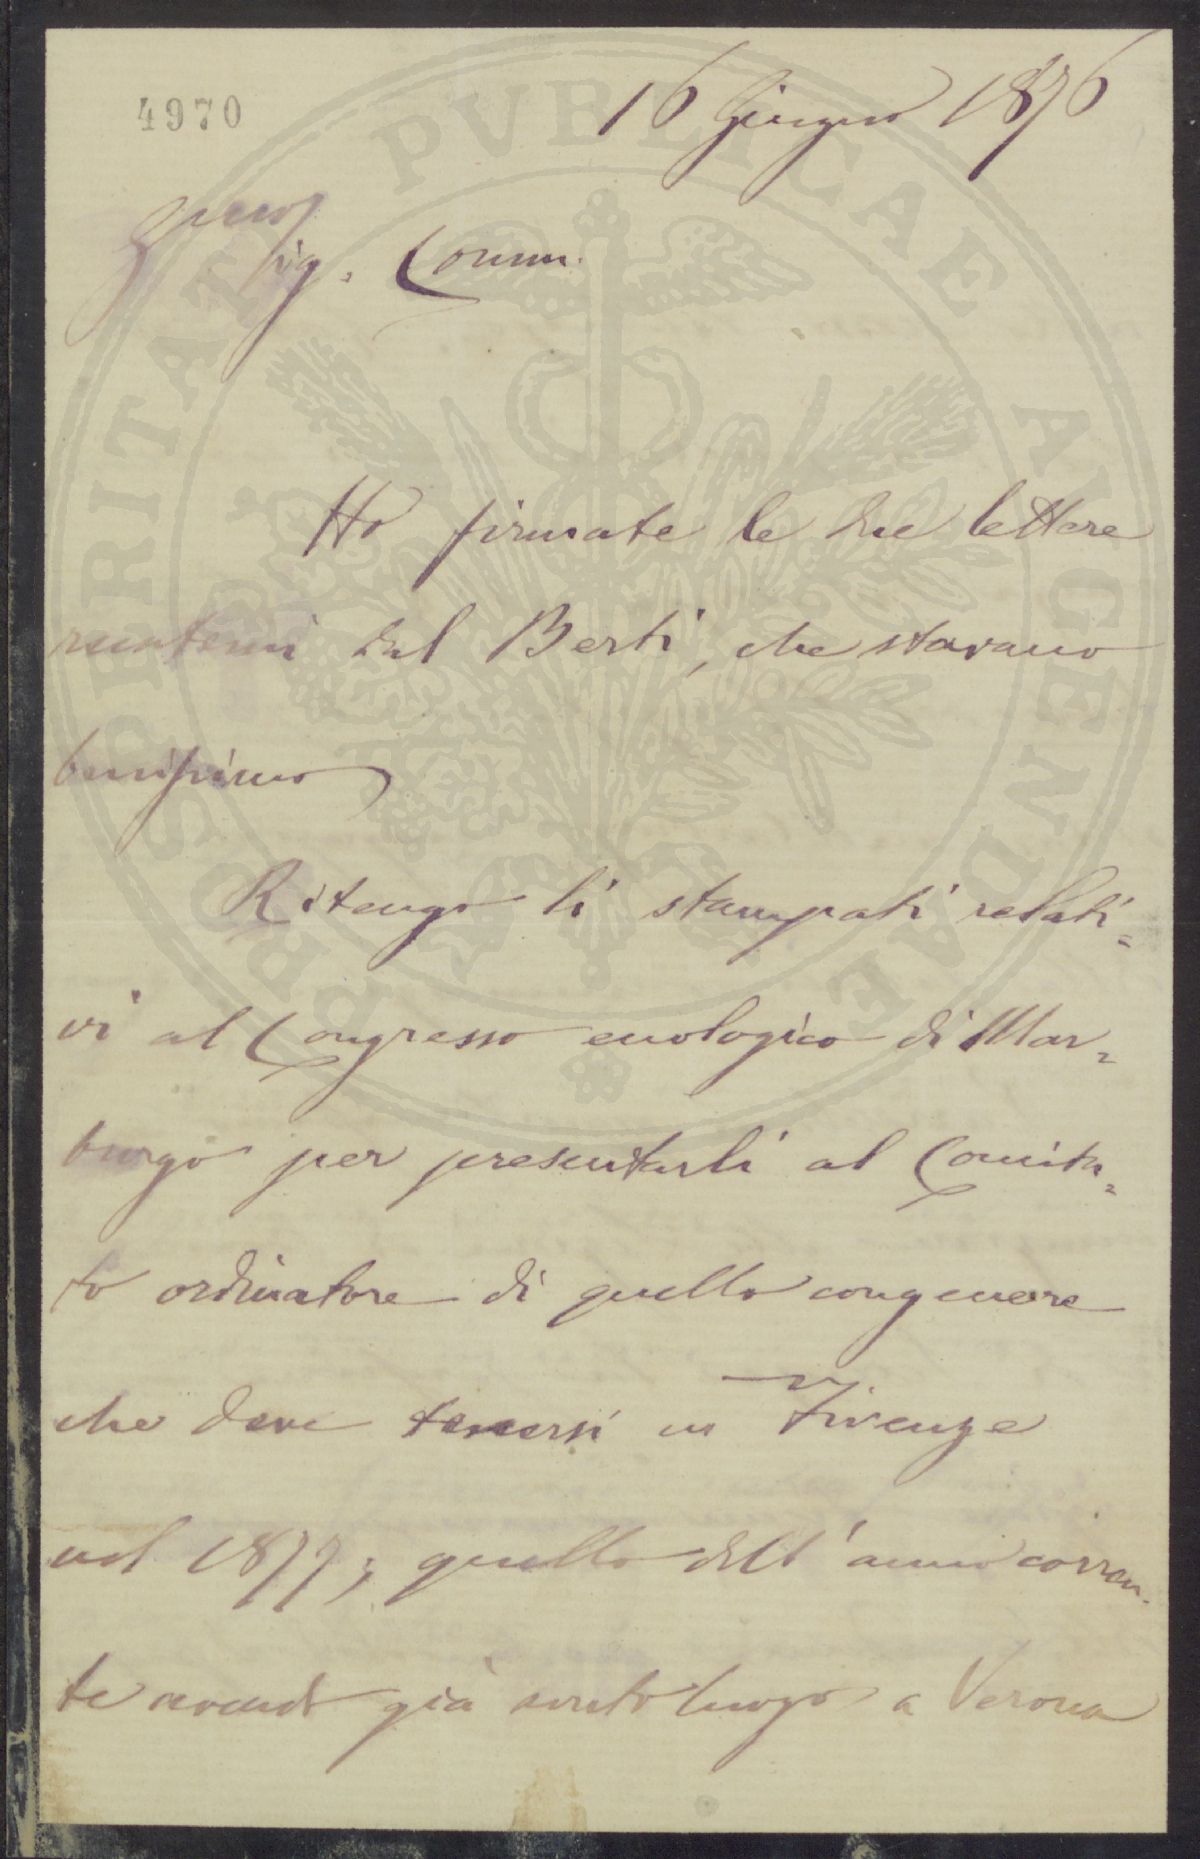 4970
16 Giugno 1876
Sig. Comm.
Ho firmate le due lettere
recatemi dal Berti, che stavano
benissimo
Ritengo li stampati relati=
vi al Congresso enologico di Mar=
burgo per presentarli al Comita=
to ordinatore di quello congenere
che deve tenersi in Firenze
nel 1877; quello dell'anno corren-
te avendo già avuto luogo a Verona
PROSPERITATI PVBLICAE AVGENDAE